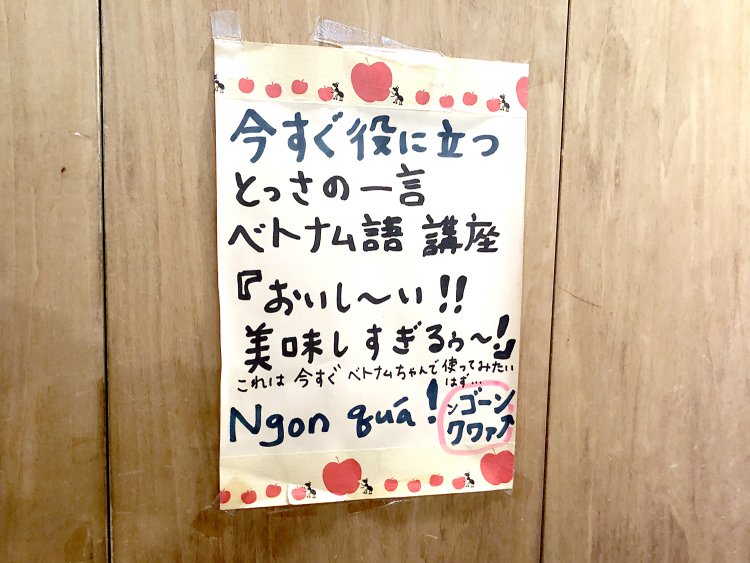 今すぐ役に立つ
とっさの一言
ベトナム語 講座
『おいし〜い!!
美味しすぎるぅ〜!』
これは 今すぐ ベトナムちゃんで 使ってみたい
はず…
Ngon quá!
ンゴーン
クワァ↑